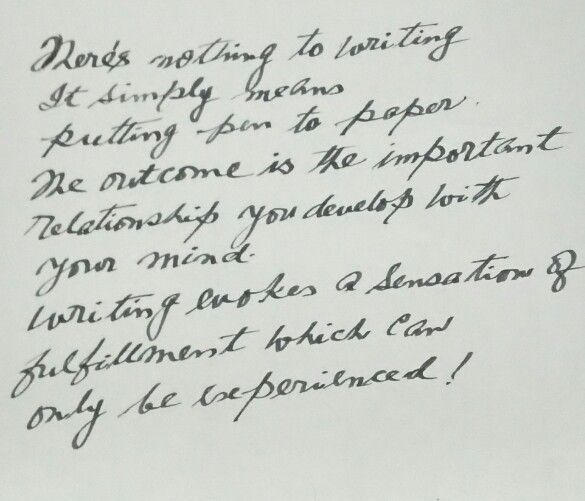 There's nothing to writing
It simply means
putting pen to paper.
The outcome is the important
relationship you develop with
your mind.
Writing evokes a sensation of
fulfillment which can
only be experienced!